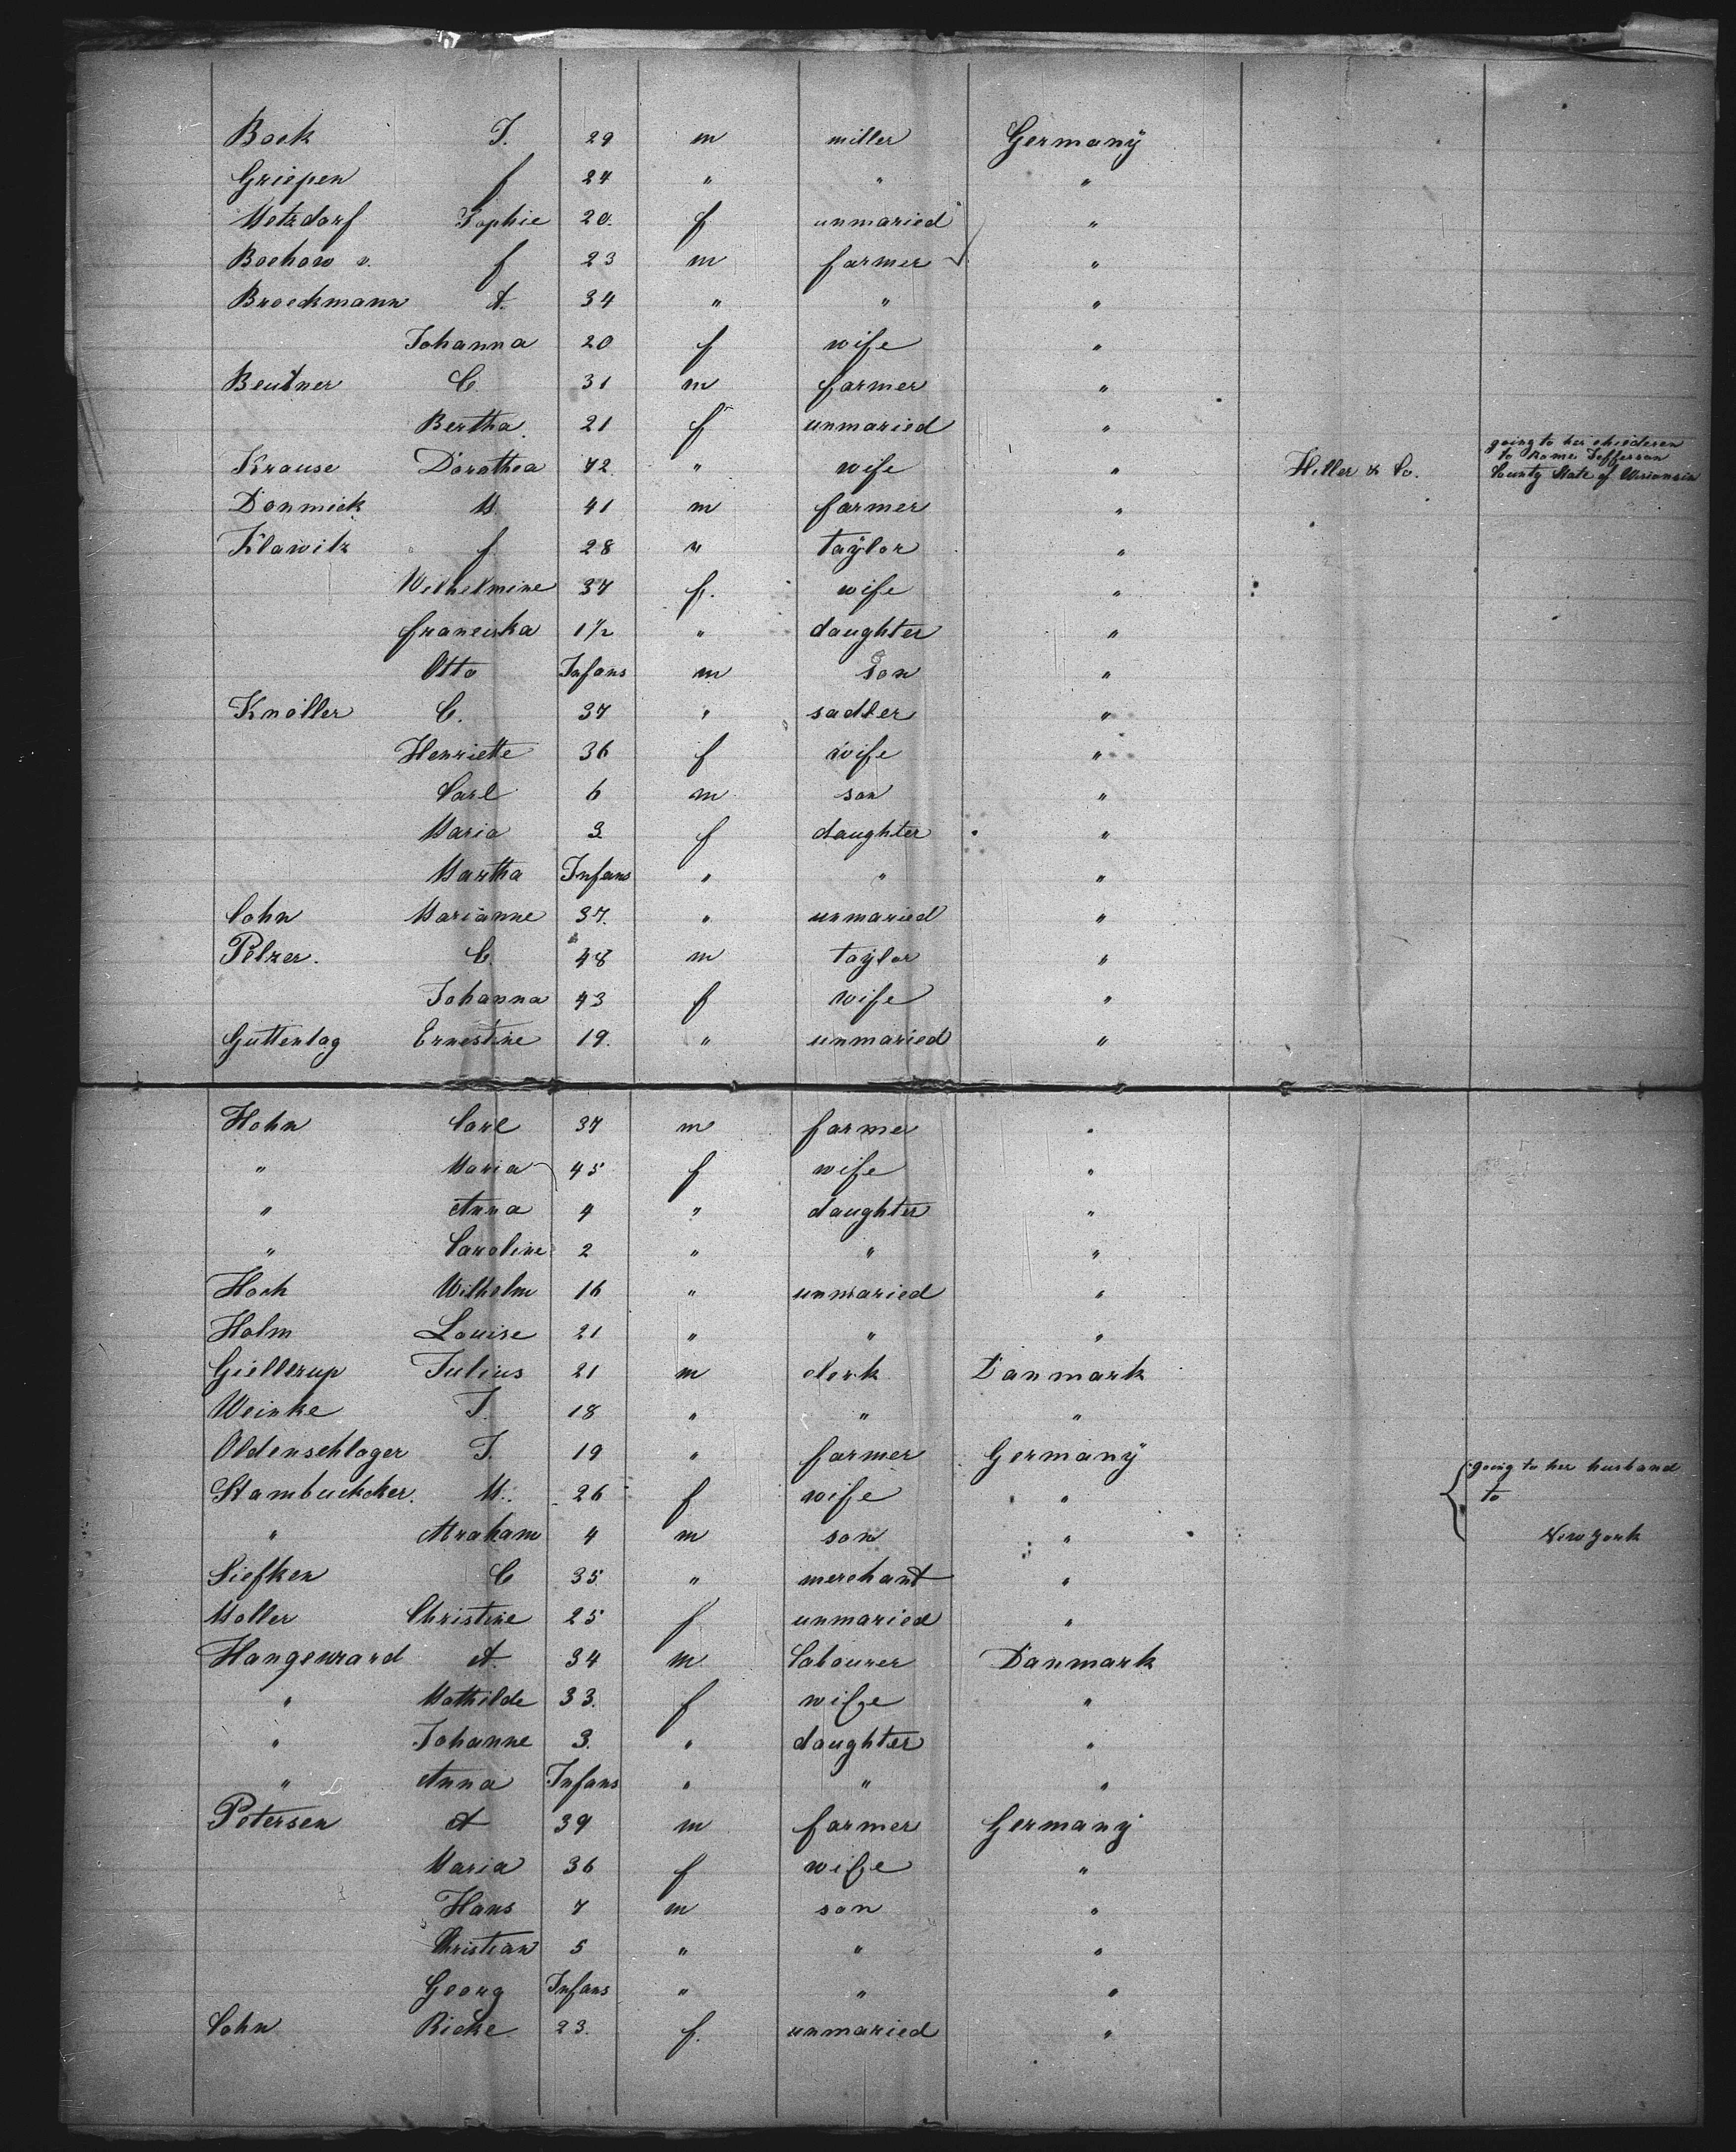 Bock J. 29 m miller Germany
Griepen f 24 " " "
Metzdorf Sophie 20. f unmaried "
Bochow v. f 23 m farmer "
Broekmann A. 34 " " "
Johanna 20 f wife "
Beutner C 31 m farmer "
Bertha 21 f unmaried "
going to her childeren
to Rome Jefferson
Krause Dorothea 72 " wife " Hiller & Co. County State of Wisconsin
Donmick M. 41 m farmer "
Klawitz f 28 " taylor "
Wilhelmine 37 f. wife "
Franciska 1 1/2 " daughter "
Otto Infans m son "
Knoller C. 37 " sadler "
Henriette 36 f wife "
Carl 6 m son "
Maria 3 f daughter "
Martha Infans " " "
Cohn Marianne 37. " unmaried "
Pelzer. C. 48 m taylor "
Johanna 43 f wife "
Guttentag Ernestine 19. " unmaried "
Hohn Carl 37 m farmer "
" Maria 45 f wife "
" Anna 4 " daughter "
" Caroline 2 " " "
Hoch Wilhelm 16 " unmaried "
Holm Louise 21 " " "
Giellerup Julius 21 m clerk Danmark
Weinke J. 18 " " "
Oldenschlager J. 19 " farmer Germany
going to her husband
Stambuckcker. M. 26 f wife " to
" Abraham 4 m son " New york
Siefken C 35 " merchant "
Moller Christine 25 f unmaried "
Hangeurard A. 34 m labourer Danmark
" Mathilde 33. f wife "
" Johanne 3. " daughter "
" Anna Infans " " "
Petersen A 39 m farmer Germany
Maria 36 f wife "
Hans 7 m son "
Christian 5 " " "
Georg Infans " " "
Cohn Ricke 23. f. unmaried "